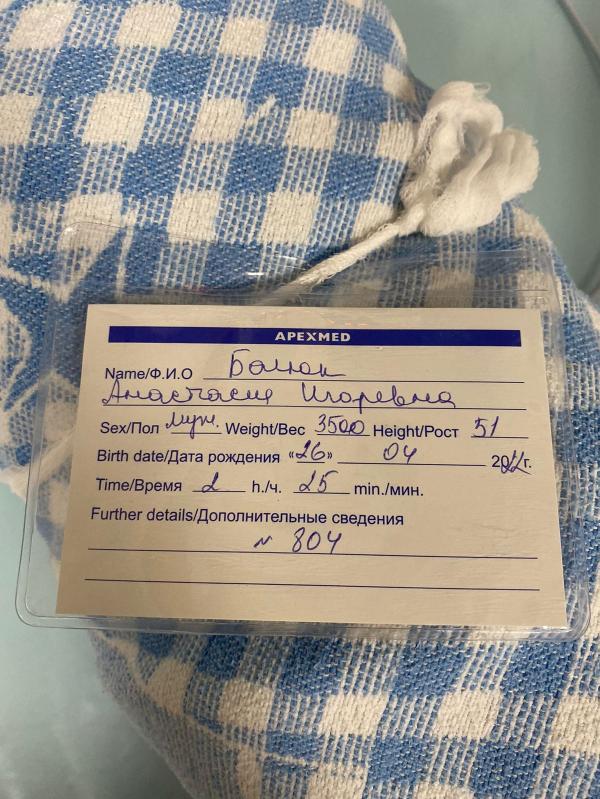 APEXMED
Name/Ф.И.О
Анастасия Игоревна
Sex/Пол муж. Weight/Вес 3500 Height/Рост 51
Birth date/Дата рождения «26» 04 2022г.
Time/Время 2 h./ч. 25 min./мин.
Further details/Дополнительные сведения
N 804